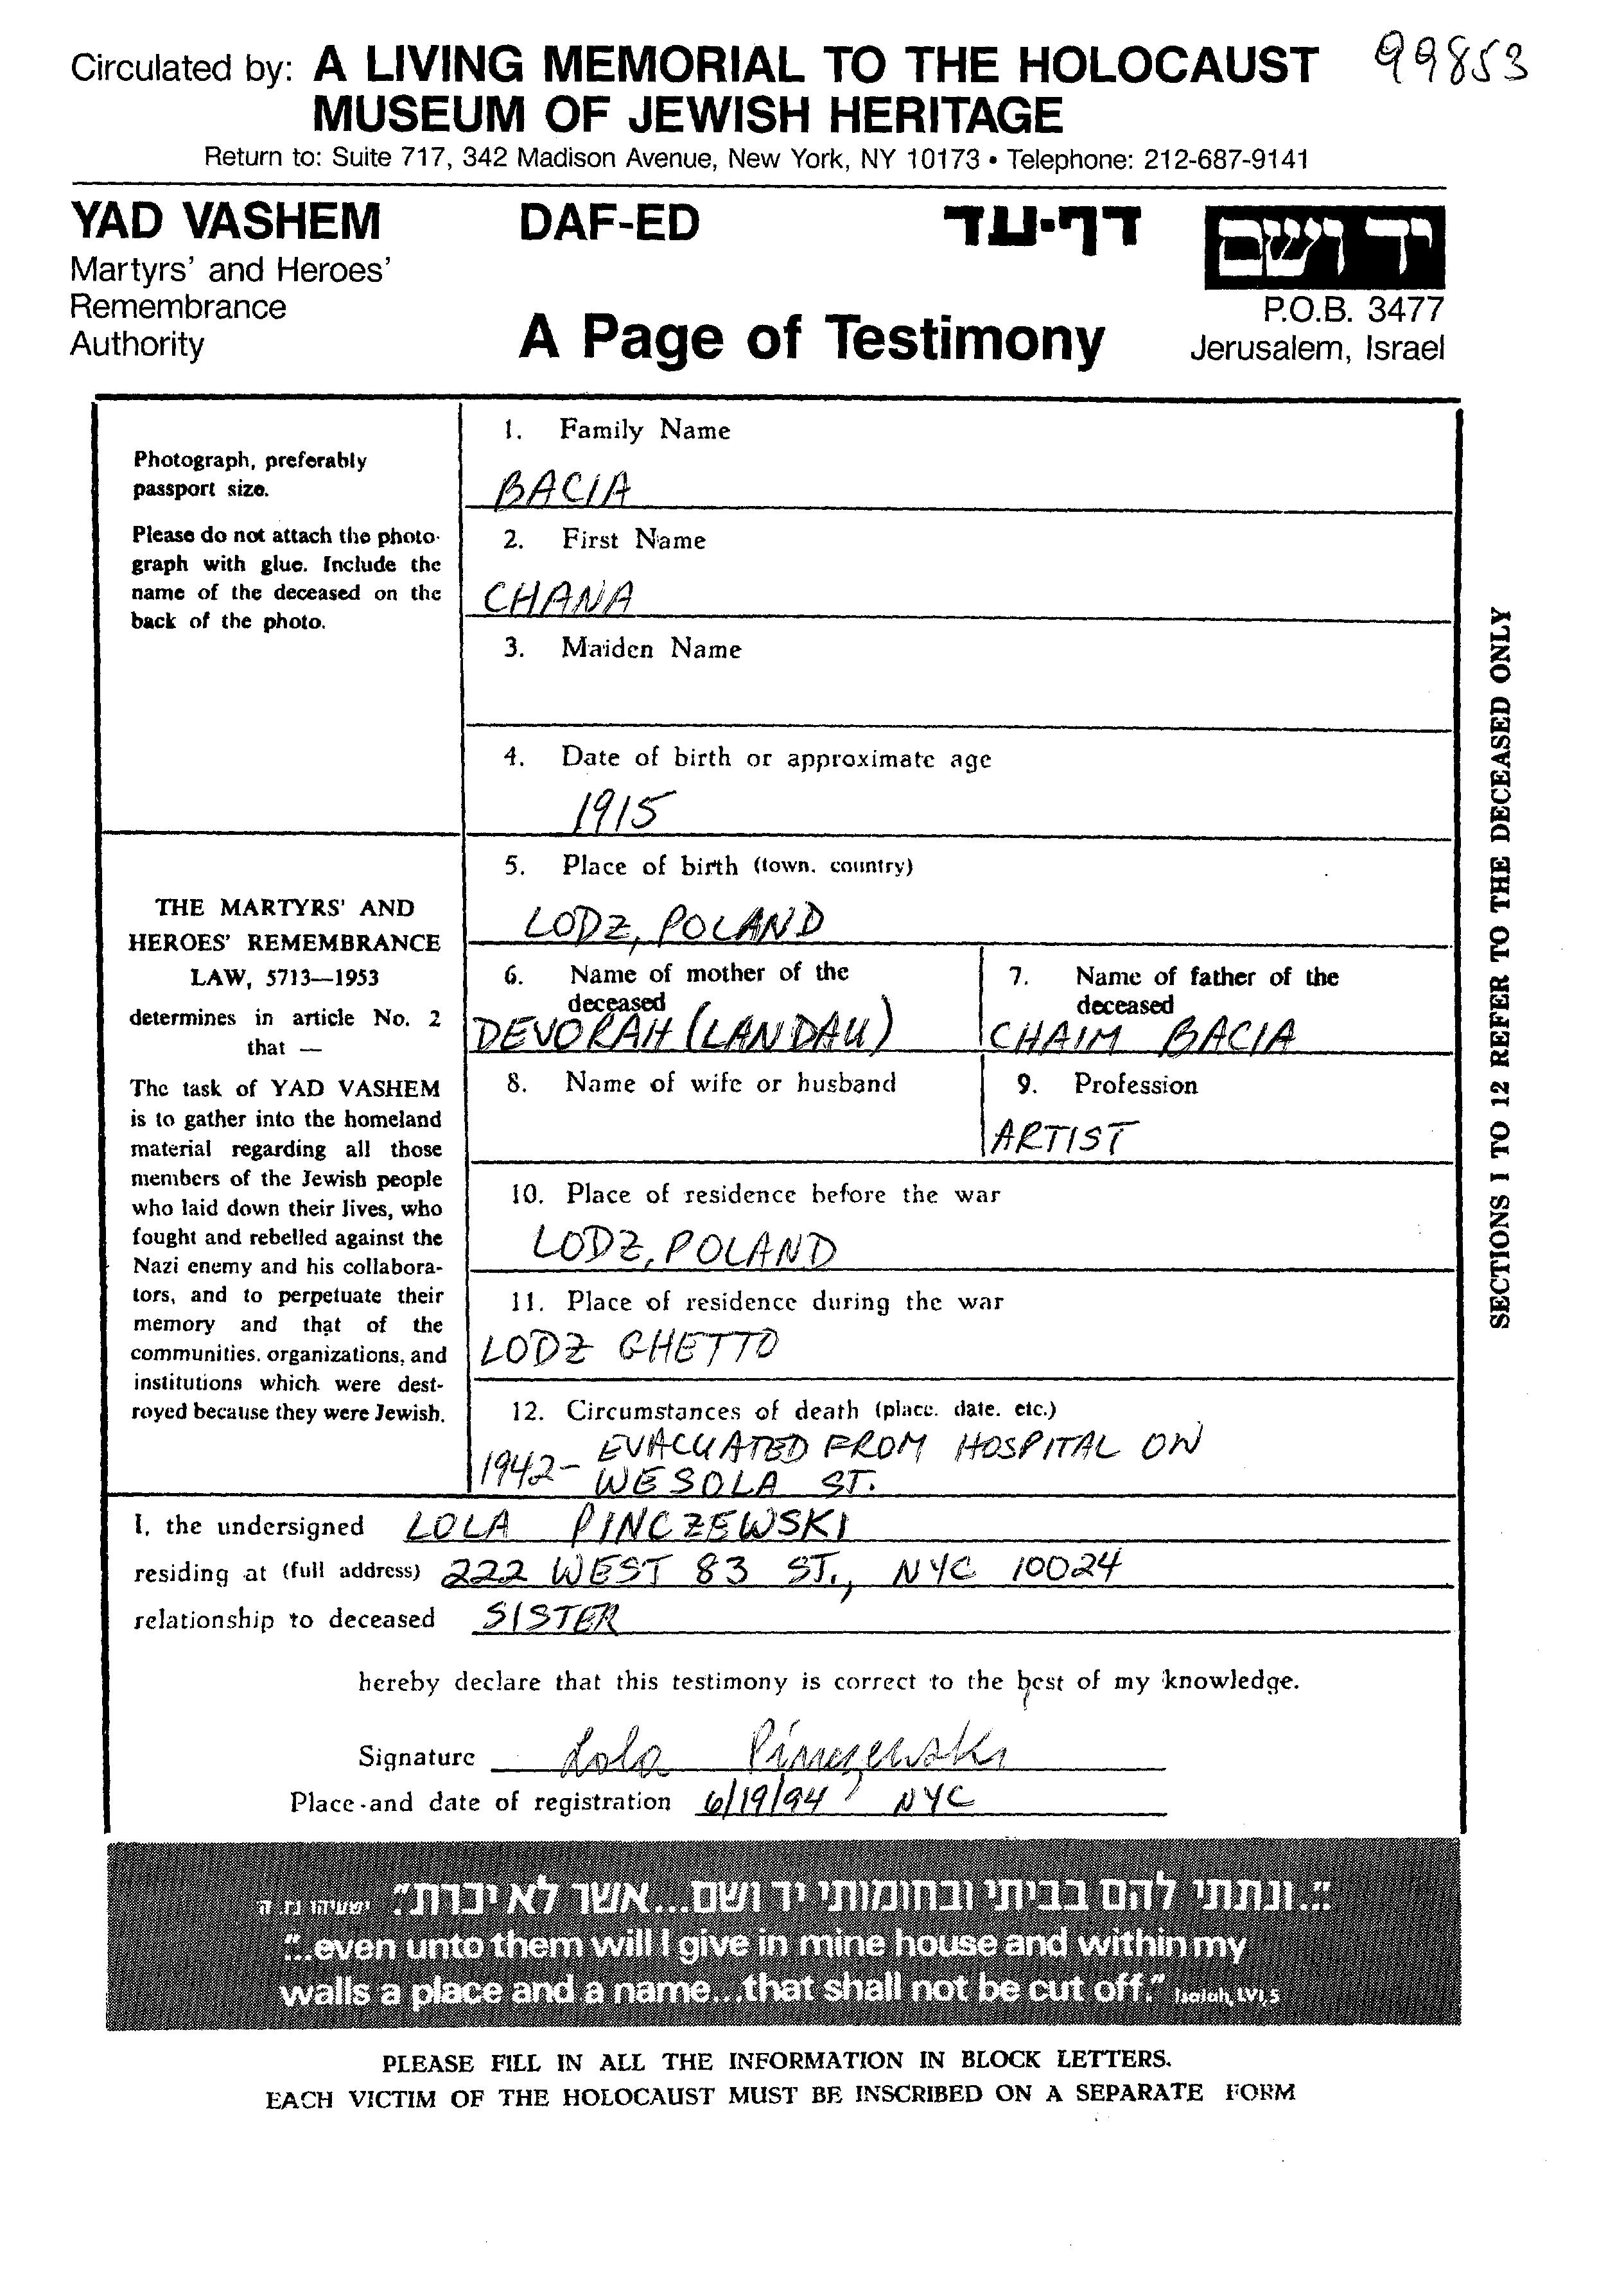 Circulated by: A LIVING MEMORIAL TO THE HOLOCAUST 99853
MUSEUM OF JEWISH HERITAGE
Return to: Suite 717, 342 Madison Avenue, New York, NY 10173 • Telephone: 212-687-9141
YAD VASHEM DAF-ED דף-עד יד ושם
Martyrs' and Heroes'
Remembrance
Authority
A Page of Testimony
P.O.B. 3477
Jerusalem, Israel
Photograph, preferably
passport size.
Please do not attach the photo-
graph with glue. Include the
name of the deceased on the
back of the photo.
THE MARTYRS' AND
HEROES' REMEMBRANCE
LAW, 5713—1953
determines in article No. 2
that —
The task of YAD VASHEM
is to gather into the homeland
material regarding all those
members of the Jewish people
who laid down their lives, who
fought and rebelled against the
Nazi enemy and his collabora-
tors, and to perpetuate their
memory and that of the
communities, organizations, and
institutions which were dest-
royed because they were Jewish.
1. Family Name
BACIA
2. First Name
CHANA
3. Maiden Name
4. Date of birth or approximate age
1915
5. Place of birth (town, country)
LODZ, POLAND
6. Name of mother of the
deceased
DEVORAH (LANDAU)
7. Name of father of the
deceased
CHAIM BACIA
8. Name of wife or husband
9. Profession
ARTIST
10. Place of residence before the war
LODZ, POLAND
11. Place of residence during the war
LODZ GHETTO
12. Circumstances of death (place, date, etc.)
1942- EVACUATED FROM HOSPITAL ON
WESOLA ST.
SECTIONS 1 TO 12 REFER TO THE DECEASED ONLY
I, the undersigned LOLA PINCZEWSKI
residing at (full address) 222 WEST 83 ST., NYC 10024
relationship to deceased SISTER
hereby declare that this testimony is correct to the best of my knowledge.
Signature Lola Pinczewski
Place and date of registration 6/19/94 NYC
"...ונתתי להם בביתי ובחומותי יד ושם...אשר לא יכרת" ישעיהו נו, ה
"...even unto them will I give in mine house and within my
walls a place and a name...that shall not be cut off." Isaiah, LVI,5
PLEASE FILL IN ALL THE INFORMATION IN BLOCK LETTERS.
EACH VICTIM OF THE HOLOCAUST MUST BE INSCRIBED ON A SEPARATE FORM